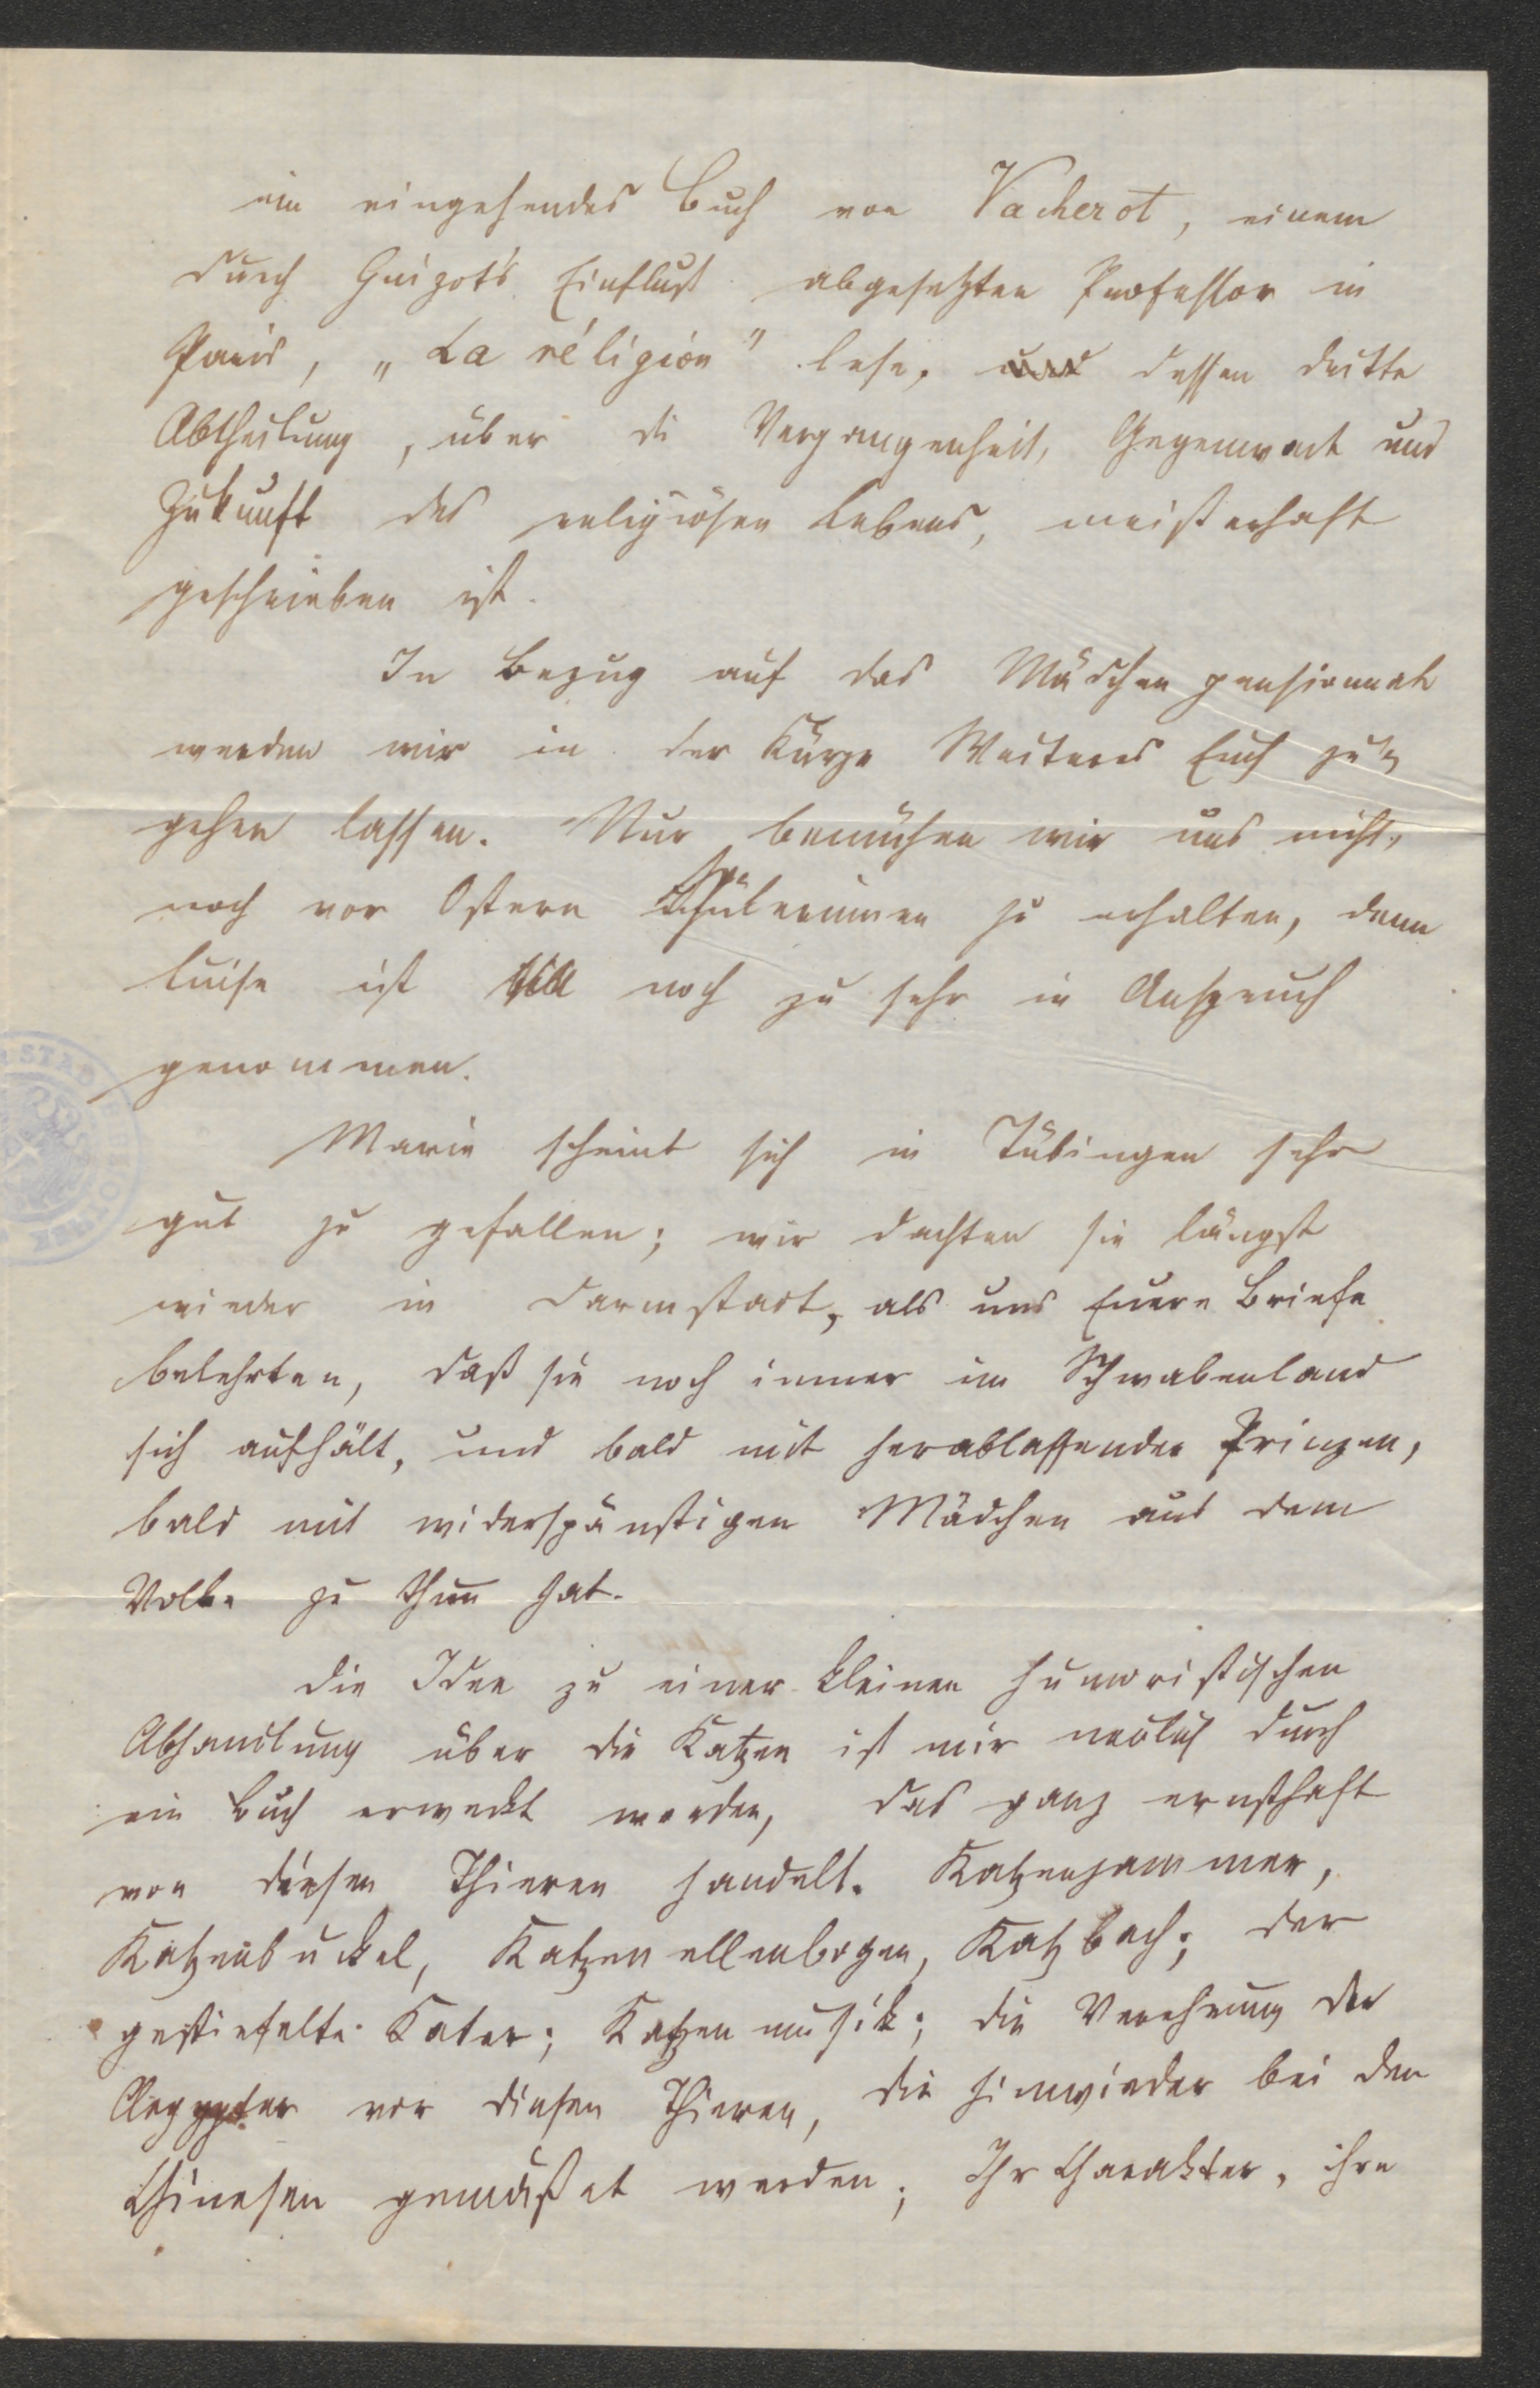 ein eingehendes Buch von Vacherot, einem
durch Guizot's Einfluß abgesetzten Professor in
Paris, „La réligion" lese, und dessen dritte
Abtheilung, über die Vergangenheit, Gegenwart und
Zukunft des religiösen Lebens, meisterhaft
geschrieben ist.
In Bezug auf das Mädchenpensionnat
werden wir in der Kürze Weiteres Euch zu-
gehen lassen. Nur bemühen wir uns nicht,
noch vor Ostern Schülerinnen zu erhalten, denn
Luise ist noch zu sehr in Anspruch
genommen.
Marie scheint sich in Tübingen sehr
gut zu gefallen; wir dachten sie längst
wieder in Darmstadt, als uns Euere Briefe
belehrten, daß sie noch immer im Schwabenland
sich aufhält, und bald mit herablassenden Prinzen,
bald mit widerspänstigen Mädchen aus dem
Volke zu thun hat.
Die Idee zu einer kleinen humoristischen
Abhandlung über die Katzen ist mir neulich durch
ein Buch erweckt worden, das ganz ernsthaft
von diesen Thieren handelt. Katzenjammer,
Katzenbuckel, Katzenellenbogen, Katzbach; der
gestiefelte Kater; Katzenmusik; die Verehrung der
Aegypter vor diesen Thieren, die hinwieder bei den
Chinesen gemästet werden; Ihr Charakter, ihre